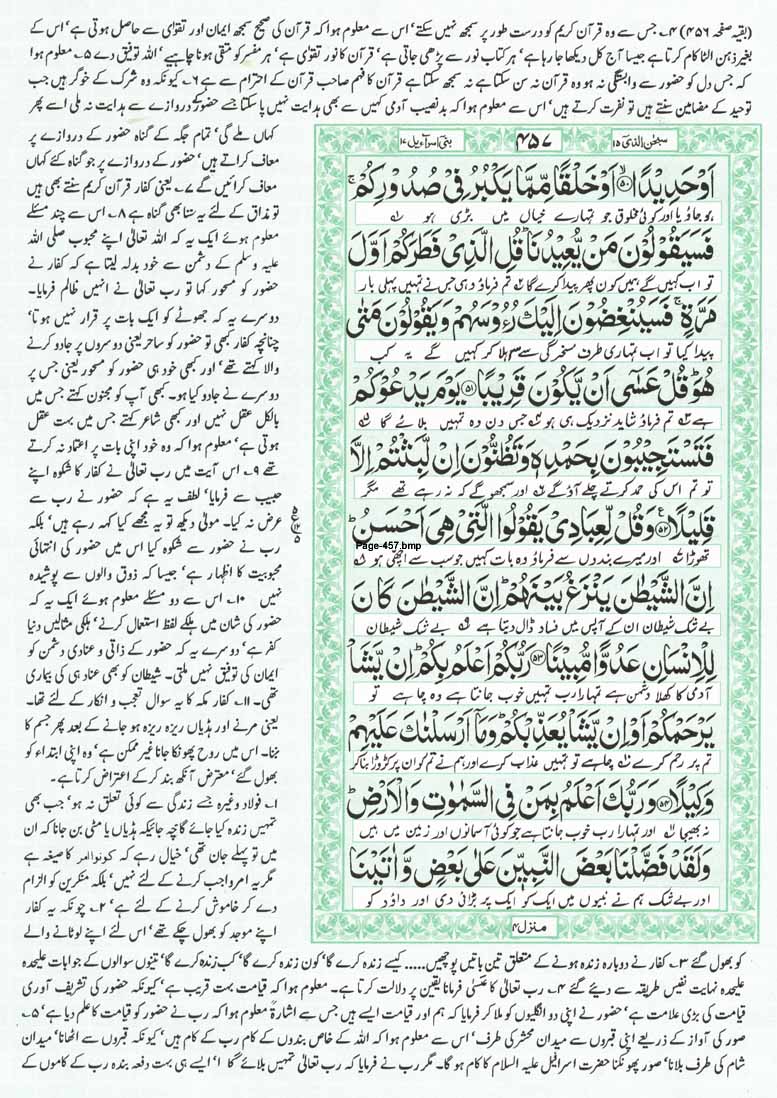 (بقیہ صفحہ ۴۵۶) ۴۔ جس سے وہ قرآن کریم کو درست طور پر سمجھ نہیں سکتے' اس سے معلوم ہوا کہ قرآن کی صحیح سمجھ ایمان اور تقوٰی سے حاصل ہوتی ہے' اس کے
بغیر ذہن الٹا کام کرتا ہے جیسا آج کل دیکھا جا رہا ہے' ہر کتاب نور سے پڑھی جاتی ہے' قرآن کا نور تقوٰی ہے' ہر مفسر کو متقی ہونا چاہیے' اللہ توفیق دے ۵۔ معلوم ہوا
کہ جس دل کو حضور سے وابستگی نہ ہو وہ قرآن نہ سن سکتا ہے نہ سمجھ سکتا ہے قرآن کا فہم صاحب قرآن کے احترام سے ہے ۶۔ کیونکہ وہ شرک کے خوگر ہیں جب
توحید کے مضامین سنتے ہیں تو نفرت کرتے ہیں' اس سے معلوم ہوا کہ بدنصیب آدمی کہیں سے بھی ہدایت نہیں پا سکتا جسے حضور کے دروازے سے ہدایت نہ ملی اسے پھر
سبحٰن الذی ۱۵
۴۵۷
بنی اسرآءیل ۱۷
اَوْ حَدِیْدًا ﴿۵۰﴾ اَوْ خَلْقًا مِّمَّا یَكْبُرُ فِیْ صُدُوْرِكُمْ ۚ
ہو جاؤ یا اور کوئی مخلوق جو تمہارے خیال میں بڑی ہو
فَسَیَقُوْلُوْنَ مَنْ یُّعِیْدُنَا ؕ قُلِ الَّذِیْ فَطَرَكُمْ اَوَّلَ
تو اب کہیں گے ہمیں کون پھر پیدا کرے گا تم فرماؤ وہی جس نے تمہیں پہلی بار
مَرَّةٍ ۚ فَسَیُنْغِضُوْنَ اِلَیْكَ رُءُوْسَهُمْ وَ یَقُوْلُوْنَ مَتٰى
پیدا کیا تو اب تمہاری طرف مسخرگی سے سر ہلا کر کہیں گے یہ کب
هُوَ ؕ قُلْ عَسٰۤى اَنْ یَّكُوْنَ قَرِیْبًا ﴿۵۱﴾ یَوْمَ یَدْعُوْكُمْ
ہے تم فرماؤ شاید نزدیک ہی ہو جس دن وہ تمہیں بلائے گا
فَتَسْتَجِیْبُوْنَ بِحَمْدِهٖ وَ تَظُنُّوْنَ اِنْ لَّبِثْتُمْ اِلَّا
تو تم اس کی حمد کرتے چلے آؤ گے اور سمجھو گے کہ نہ رہے تھے مگر
قَلِیْلًا ﴿۵۲﴾ وَ قُلْ لِّعِبَادِیْ یَقُوْلُوا الَّتِیْ هِیَ اَحْسَنُ ؕ
Page-457.bmp
تھوڑا اور میرے بندوں سے فرماؤ وہ بات کہیں جو سب سے اچھی ہو
اِنَّ الشَّیْطٰنَ یَنْزَغُ بَیْنَهُمْ ؕ اِنَّ الشَّیْطٰنَ كَانَ
بے شک شیطان ان کے آپس میں فساد ڈال دیتا ہے بے شک شیطان
لِلْاِنْسَانِ عَدُوًّا مُّبِیْنًا ﴿۵۳﴾ رَبُّكُمْ اَعْلَمُ بِكُمْ ؕ اِنْ یَّشَاْ
آدمی کا کھلا دشمن ہے تمہارا رب تمہیں خوب جانتا ہے وہ چاہے تو
یَرْحَمْكُمْ اَوْ اِنْ یَّشَاْ یُعَذِّبْكُمْ ؕ وَ مَاۤ اَرْسَلْنٰكَ عَلَیْهِمْ
تم پر رحم کرے چاہے تو تمہیں عذاب کرے اور ہم نے تم کو ان پر کڑوڑا بنا کر
وَكِیْلًا ﴿۵۴﴾ وَ رَبُّكَ اَعْلَمُ بِمَنْ فِی السَّمٰوٰتِ وَ الْاَرْضِ ؕ
نہ بھیجا اور تمہارا رب خوب جانتا ہے جو کوئی آسمانوں اور زمین میں ہیں
وَ لَقَدْ فَضَّلْنَا بَعْضَ النَّبِیّٖنَ عَلٰى بَعْضٍ وَّ اٰتَیْنَا
اور بے شک ہم نے نبیوں میں ایک کو ایک پر بڑائی دی اور داؤد کو
منزل ۴
کہاں ملے گی' تمام جگہ کے گناہ حضور کے دروازے پر
معاف کراتے ہیں' حضور کے دروازے پر جو گناہ کئے کہاں
معاف کرائیں گے ۷۔ یعنی کفار قرآن کریم سنتے بھی ہیں
تو مذاق کے لئے یہ سننا بھی گناہ ہے ۸۔ اس سے چند مسئلے
معلوم ہوئے ایک یہ کہ اللہ تعالیٰ اپنے محبوب صلی اللہ
علیہ وسلم کے دشمن سے خود بدلہ لیتا ہے کہ کفار نے
حضور کو مسحور کہا تو رب تعالیٰ نے انہیں ظالم فرمایا۔
دوسرے یہ کہ جھوٹے کو ایک بات پر قرار نہیں ہوتا'
چنانچہ کفار کبھی تو حضور کو ساحر یعنی دوسروں پر جادو کرنے
والا کہتے تھے' اور کبھی خود ہی حضور کو مسحور یعنی جس پر
دوسرے نے جادو کیا ہو۔ کبھی آپ کو مجنون کہتے جس میں
بالکل عقل نہیں اور کبھی شاعر کہتے جس میں بہت عقل
ہوتی ہے' معلوم ہوا کہ وہ خود اپنی بات پر اعتماد نہ کرتے
تھے ۹۔ اس آیت میں رب تعالیٰ نے کفار کا شکوہ اپنے
حبیب سے فرمایا' لطف یہ ہے کہ حضور نے رب سے
عرض نہ کیا۔ مولیٰ دیکھ تو یہ مجھے کیا کہہ رہے ہیں' بلکہ
رب نے حضور سے شکوہ کیا اس میں حضور کی انتہائی
محبوبیت کا اظہار ہے' جیسا کہ ذوق والوں سے پوشیدہ
نہیں ۱۰۔ اس سے دو مسئلے معلوم ہوئے ایک یہ کہ
حضور کی شان میں ہلکے لفظ استعمال کرنے' ہلکی مثالیں دینا
کفر ہے' دوسرے یہ کہ حضور کے ذاتی و عنادی دشمن کو
ایمان کی توفیق نہیں ملتی۔ شیطان کو بھی عناد ہی کی بیماری
تھی۔ ۱۱۔ کفار مکہ کا یہ سوال تعجب و انکار کے لئے تھا۔
یعنی مرنے اور ہڈیاں ریزہ ریزہ ہو جانے کے بعد پھر جسم کا
بننا۔ اس میں روح پھونکا جانا غیر ممکن ہے' وہ اپنی ابتداء کو
بھول گئے' معترض آنکھ بند کر کے اعتراض کرتا ہے۔
۱۔ فولاد وغیرہ جسے زندگی سے کوئی تعلق نہ ہو' جب بھی
تمہیں زندہ کیا جائے گا چہ جائیکہ ہڈیاں یا مٹی بن جانا کہ ان
میں تو پہلے جان تھی' خیال رہے کہ کونوا امر کا صیغہ ہے
مگر یہ امر واجب کرنے کے لئے نہیں' بلکہ منکرین کو الزام
دے کر خاموش کرنے کے لئے ہے' ۲۔ چونکہ یہ کفار
اپنے موجد کو بھول چکے تھے' اس لئے اپنے لوٹانے والے
کو بھول گئے ۳۔ کفار نے دوبارہ زندہ ہونے کے متعلق تین باتیں پوچھیں..... کیسے زندہ کرے گا' کون زندہ کرے گا' کب زندہ کرے گا' تینوں سوالوں کے جوابات علیحدہ
علیحدہ نہایت نفیس طریقہ سے دیئے گئے ۴۔ رب تعالیٰ کا عَسٰی فرمانا یقین پر دلالت کرتا ہے۔ معلوم ہوا کہ قیامت بہت قریب ہے' کیونکہ حضور کی تشریف آوری
قیامت کی بڑی علامت ہے' حضور نے اپنی دو انگلیوں کو ملا کر فرمایا کہ ہم اور قیامت ایسے ہیں جس سے اشارۃً معلوم ہوا کہ رب نے حضور کو قیامت کا علم دیا ہے' ۵۔
صور کی آواز کے ذریعے اپنی قبروں سے میدان محشر کی طرف' اس سے معلوم ہوا کہ اللہ کے خاص بندوں کے کام رب کے کام ہیں' کیونکہ قبروں سے اٹھانا' میدان
شام کی طرف بلانا' صور پھونکنا حضرت اسرافیل علیہ السلام کا کام ہو گا۔ مگر رب نے فرمایا کہ رب تعالیٰ تمہیں بلائے گا' ایسے ہی بہت دفعہ بندہ رب کے کاموں کے